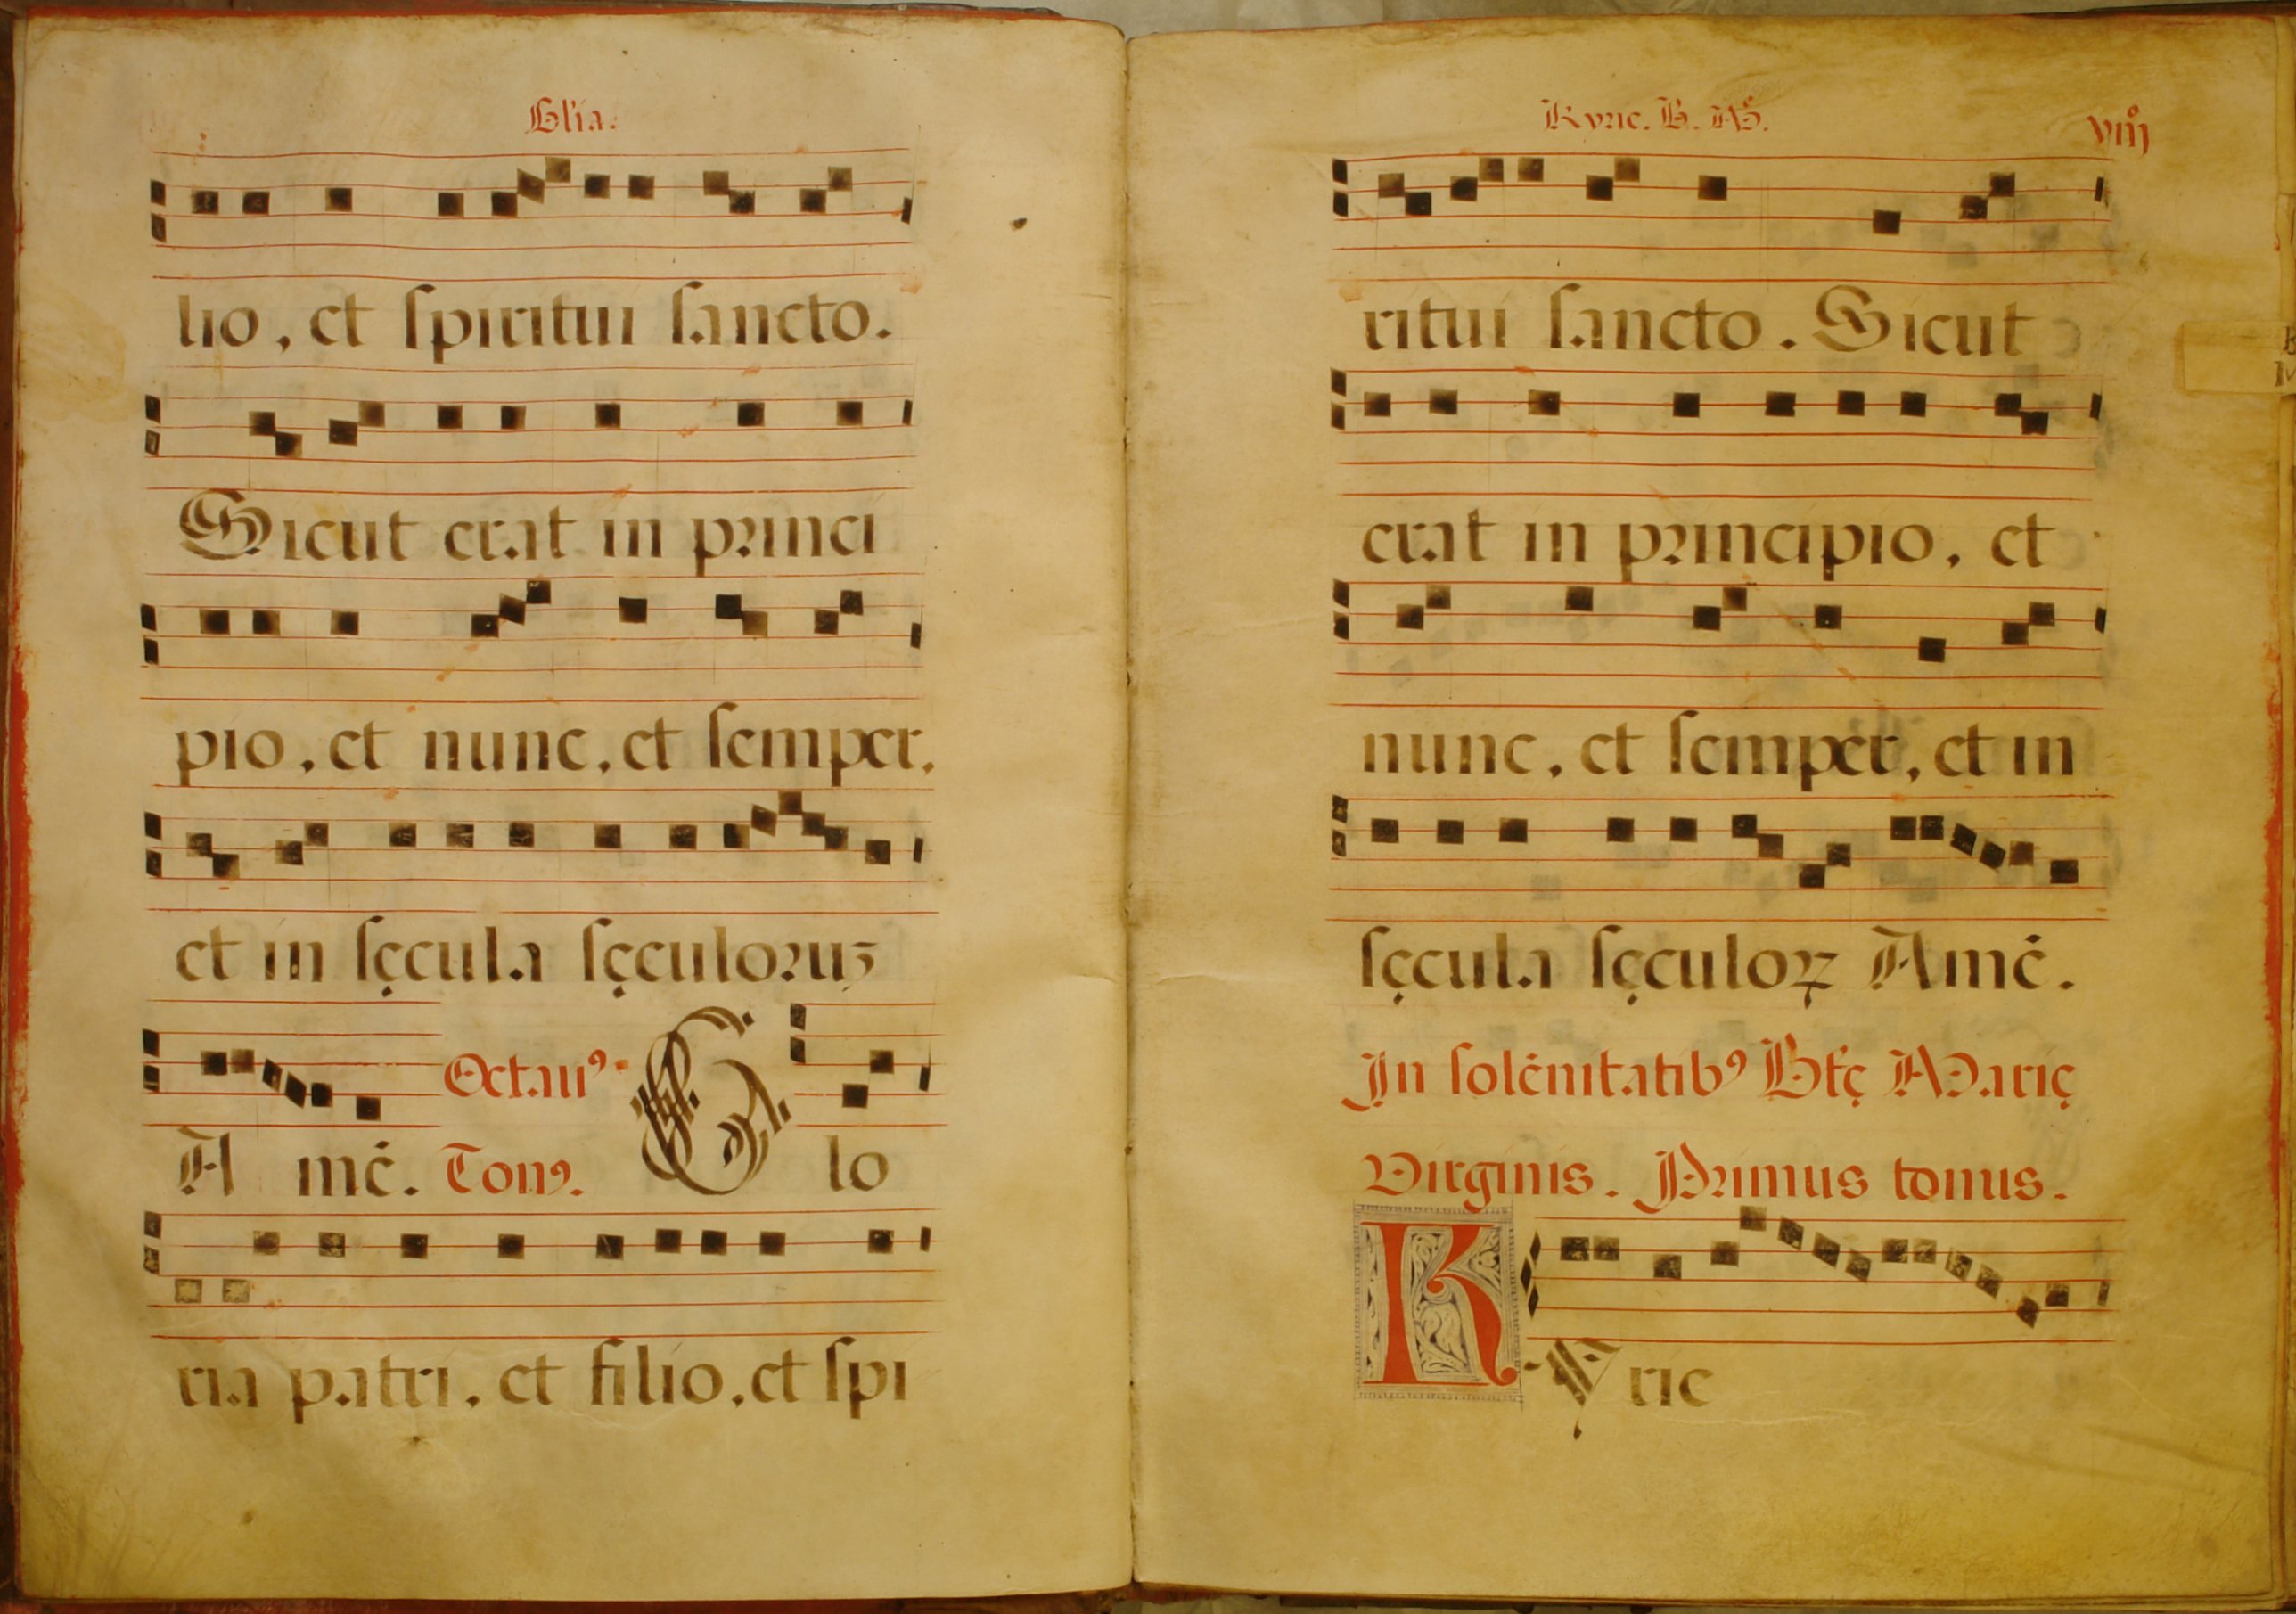 Gl'ia.
lio, et spiritui sancto.
Sicut erat in princi
pio, et nunc, et semper,
et in sęcula sęculoruꝫ
A mē. Octauꝰ Tonꝰ. Glo
ria patri, et filio, et spi
Kyrie. B. M. viiij
ritui sancto. Sicut
erat in principio, et
nunc, et semper, et in
sęcula sęculoꝝ Amē.
In solēnitatibꝰ Btę Marię
Virginis. Primus tonus.
Kyrie